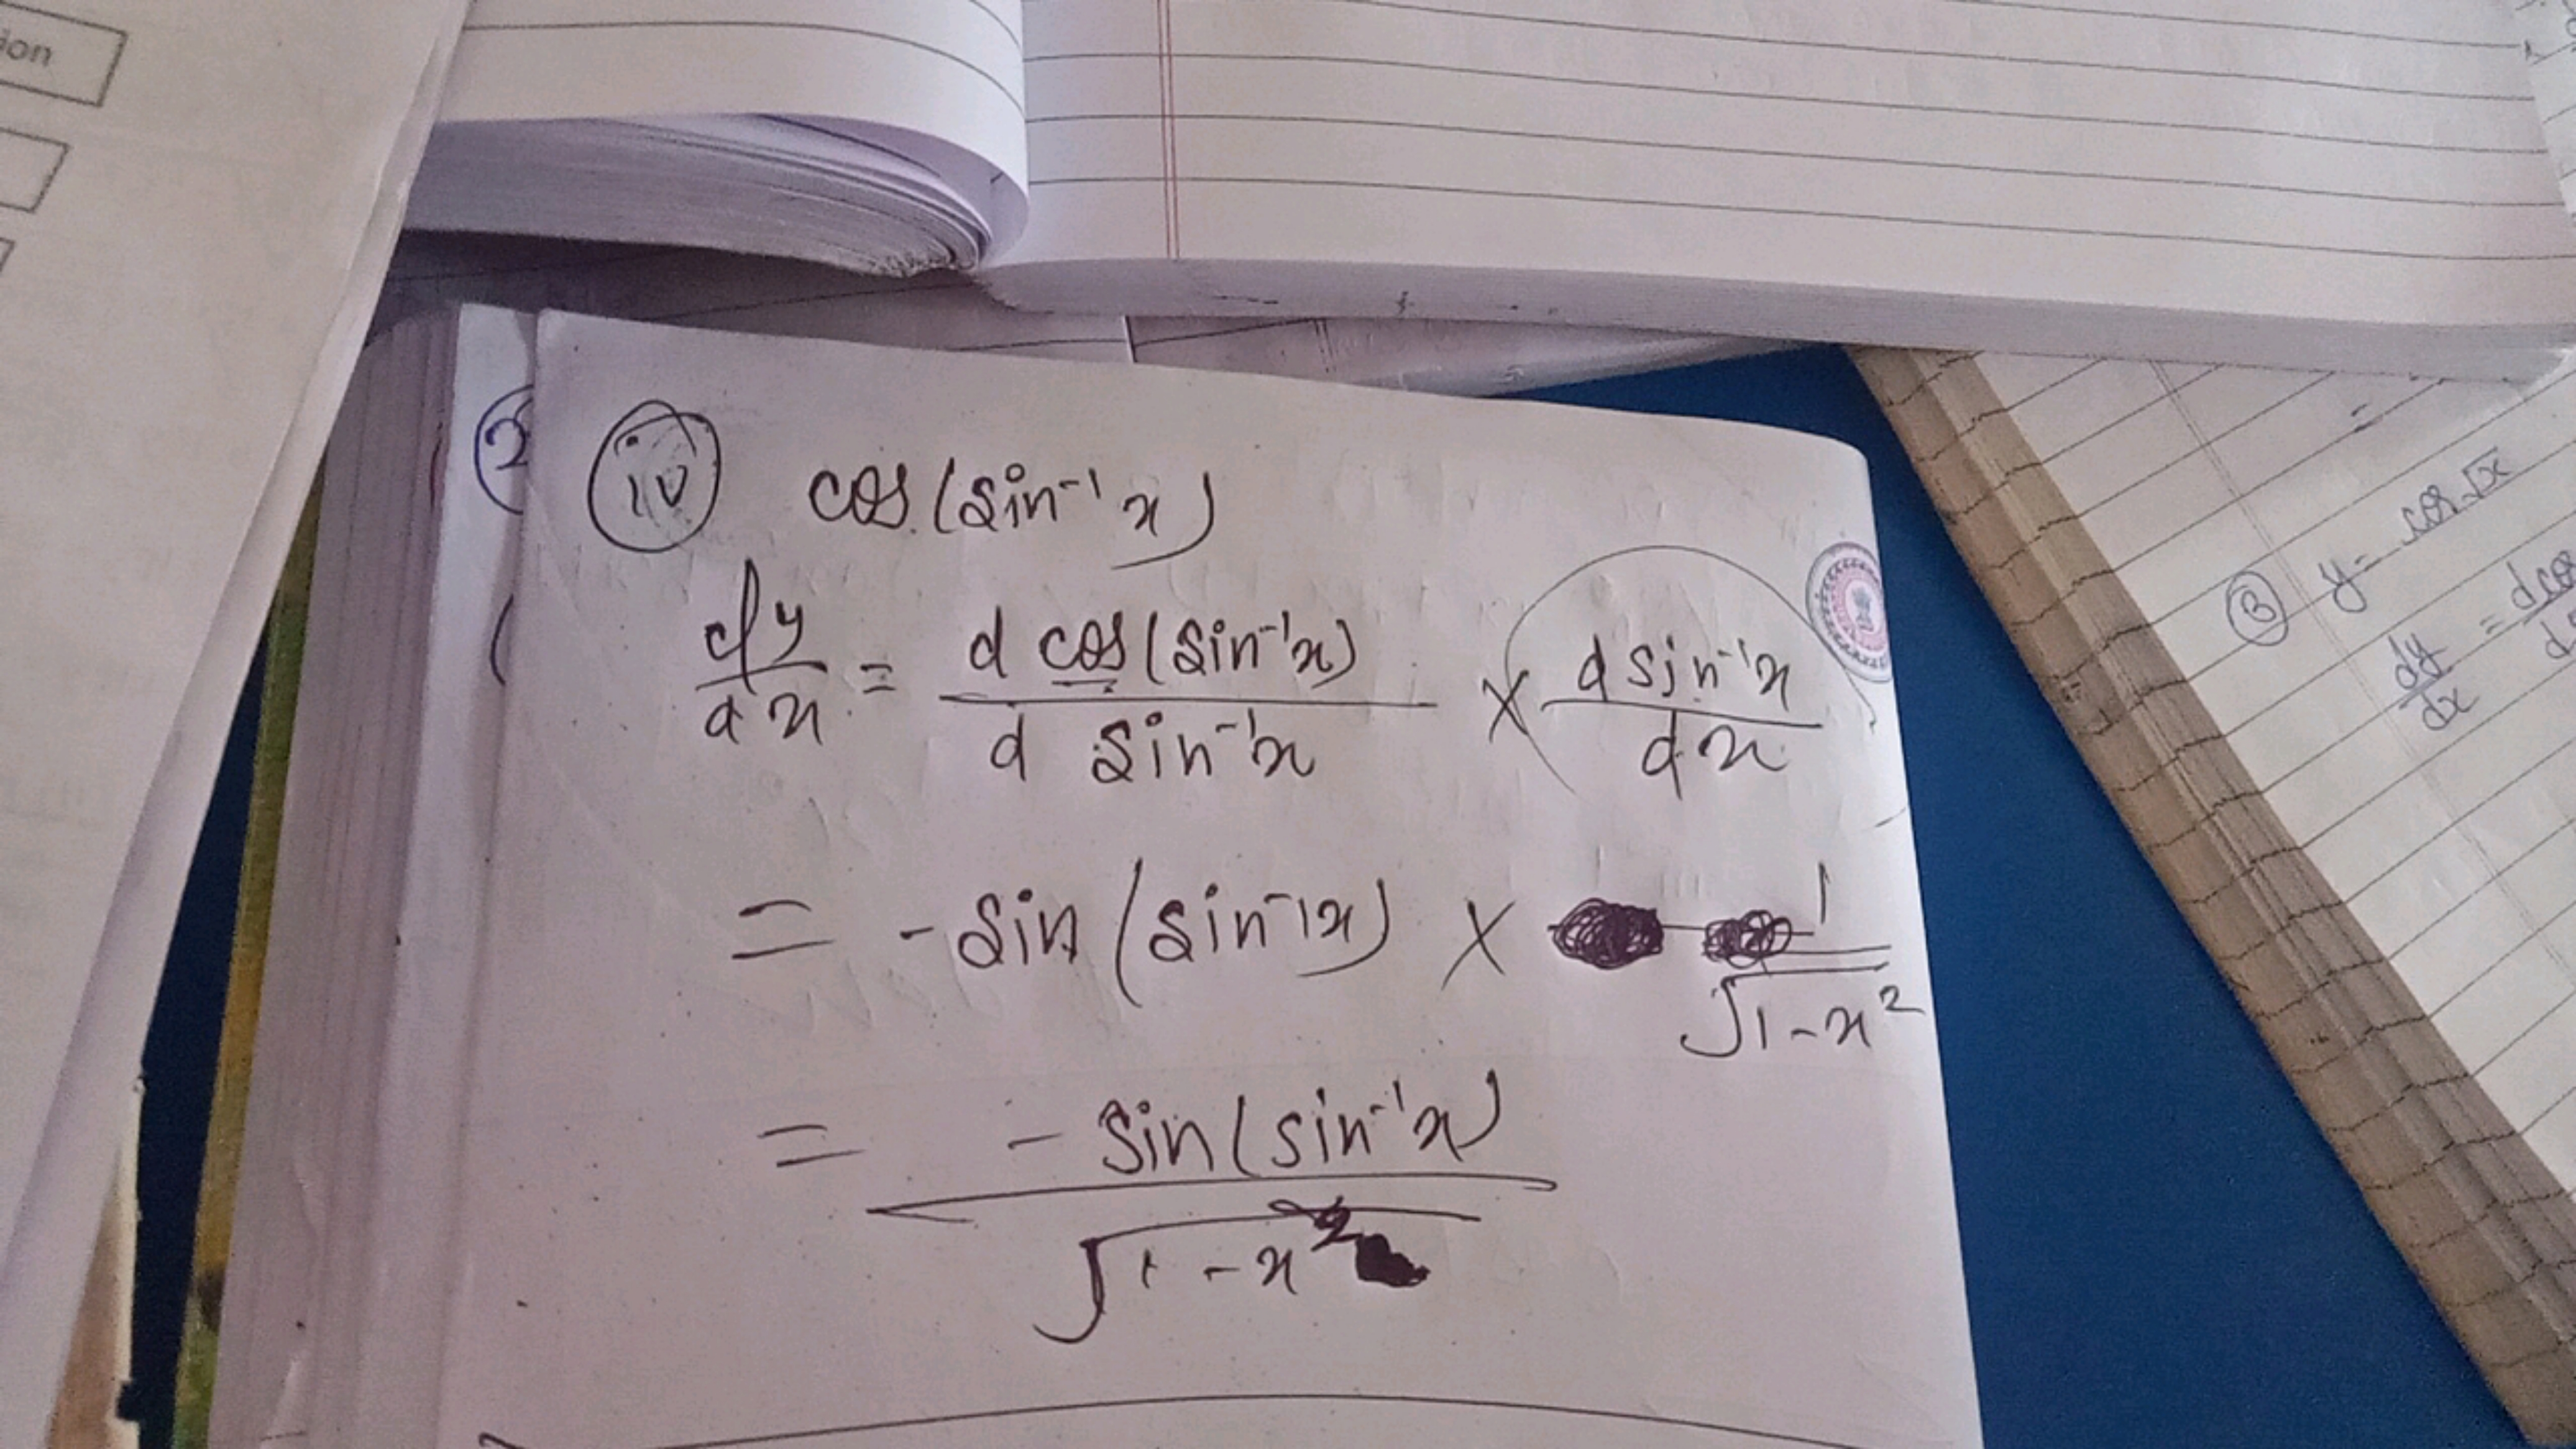 ion
2
iv cos(sin⁻¹x)
dy/dx = d cos(sin⁻¹x)/d sin⁻¹x × d sin⁻¹x/dx
= -sin(sin⁻¹x) × 1/√1-x²
= -sin(sin⁻¹x)/√1-x²
3 y = cos√x
dy/dx = d cos